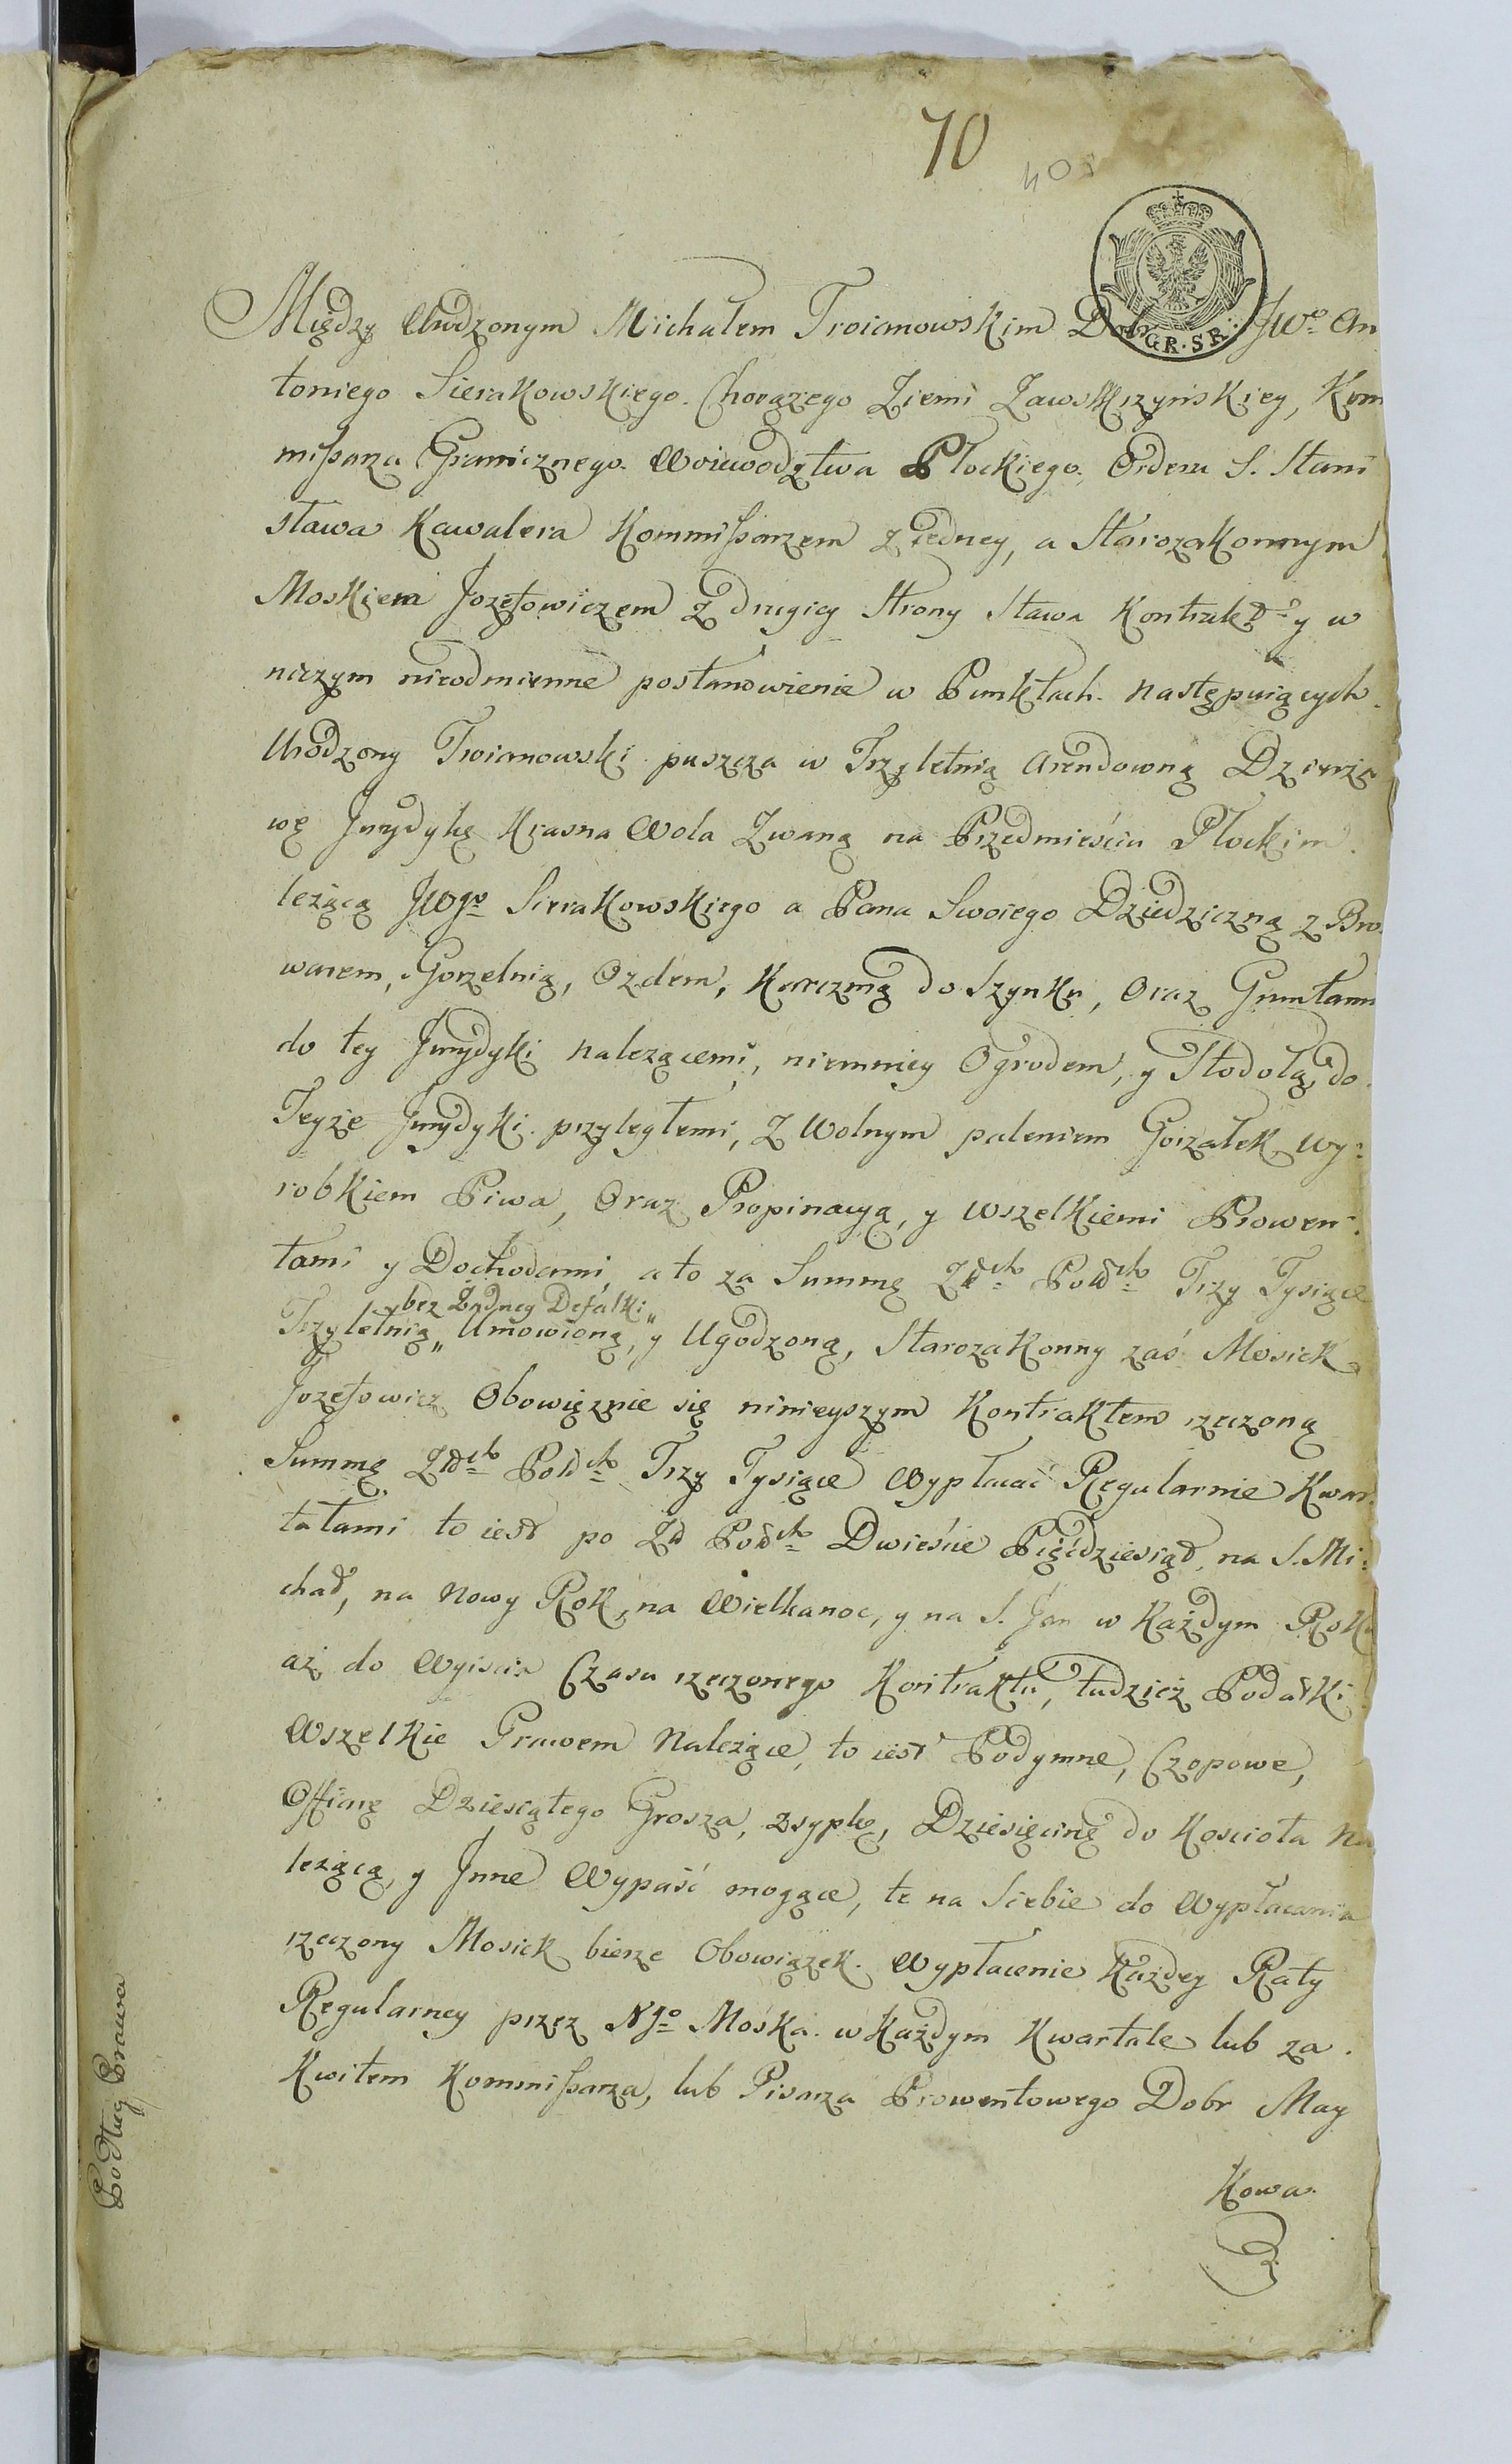 70
403
GR. SR.
Między Urodzonym Michałem Troianowskim Dobr JWo An
toniego Sierakowskiego Chorążego Ziemi Zawskrzyńskiey, Kom
missarza Granicznego Woiewodztwa Płockiego, Orderu S. Stani
sława Kawalera Kommissarzem z iedney, a Starozakonnym
Moskiem Jozefowiczem z drugiey strony stawa Kontrakt y w
niczym nieodmienne postanowienie w Punktach następuiących.
Urodzony Troianowski puszcza w Trzyletnią Arendowną Dzierża
wę Jurydykę Krasna Wola Zwaną na Przedmieściu Płockim
leżącą JWgo Sierakowskiego a Pana Swoiego Dziedziczną z Bro
warem, Gorzelnią, Ozdem, Karczmą do Szynku, Oraz Gruntami
do tey Jurydyki należącemi, niemniey Ogrodem, y Stodołą, do
Teyże Jurydyki przyległemi, z Wolnym paleniem Gorzałek, wy:
robkiem Piwa, Oraz Propinacyą, y wszelkiemi Prowen:
tami y Dochodami, a to za Summę Złch Polch Trzy Tysiące
bez Żadney Defalki
Trzyletnią „ Umowioną, y Ugodzoną, Starozakonny zaś Mosiek
Jozefowicz Obowięznie się ninieyszym Kontraktem rzeczoną
Summę Złch Polch Trzy Tysiące Wypłacać Regularnie Kwar
tałami to iest po Zł Polch Dwieście Pięćdziesiąt, na S. Mi:
chał, na Nowy Rok, na Wielkanoc, y na S. Jan w Każdym Roku
aż do Wyiścia Czasu rzeczonego Kontraktu, tudzież Podatki
Wszelkie Prawem Należące, to iest Podymne, Czopowe,
Offiarę Dziesiątego Grosza, zsypkę, Dziesięcinę do Kościoła Na
leżącą, y Jnne Wypaść mogące, te na Siebie do Wypłacania
rzeczony Mosiek bierze Obowiązek. Wypłacenie Każdey Raty
Regularney przez Ngo Mośka w Każdym Kwartale lub za
Kwitem Kommissarza, lub Pisarza Prowentowego Dobr May
Kowa
Podług Prawa